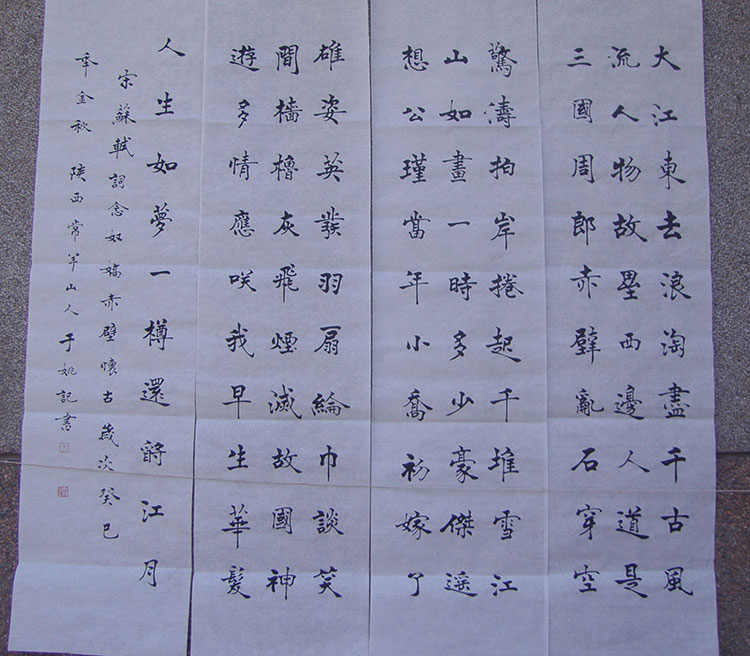 大江東去浪淘盡千古風
流人物故壘西邊人道是
三國周郎赤壁亂石穿空
驚濤拍岸捲起千堆雪江
山如畫一時多少豪傑遥
想公瑾當年小喬初嫁了
雄姿英發羽扇綸巾談笑
間檣櫓灰飛煙滅故國神
遊多情應咲我早生華髮
人生如夢一樽還酹江月
宋蘇軾詞念奴嬌赤壁懷古歲次癸巳
年金秋陝西常羊山人于姚記書